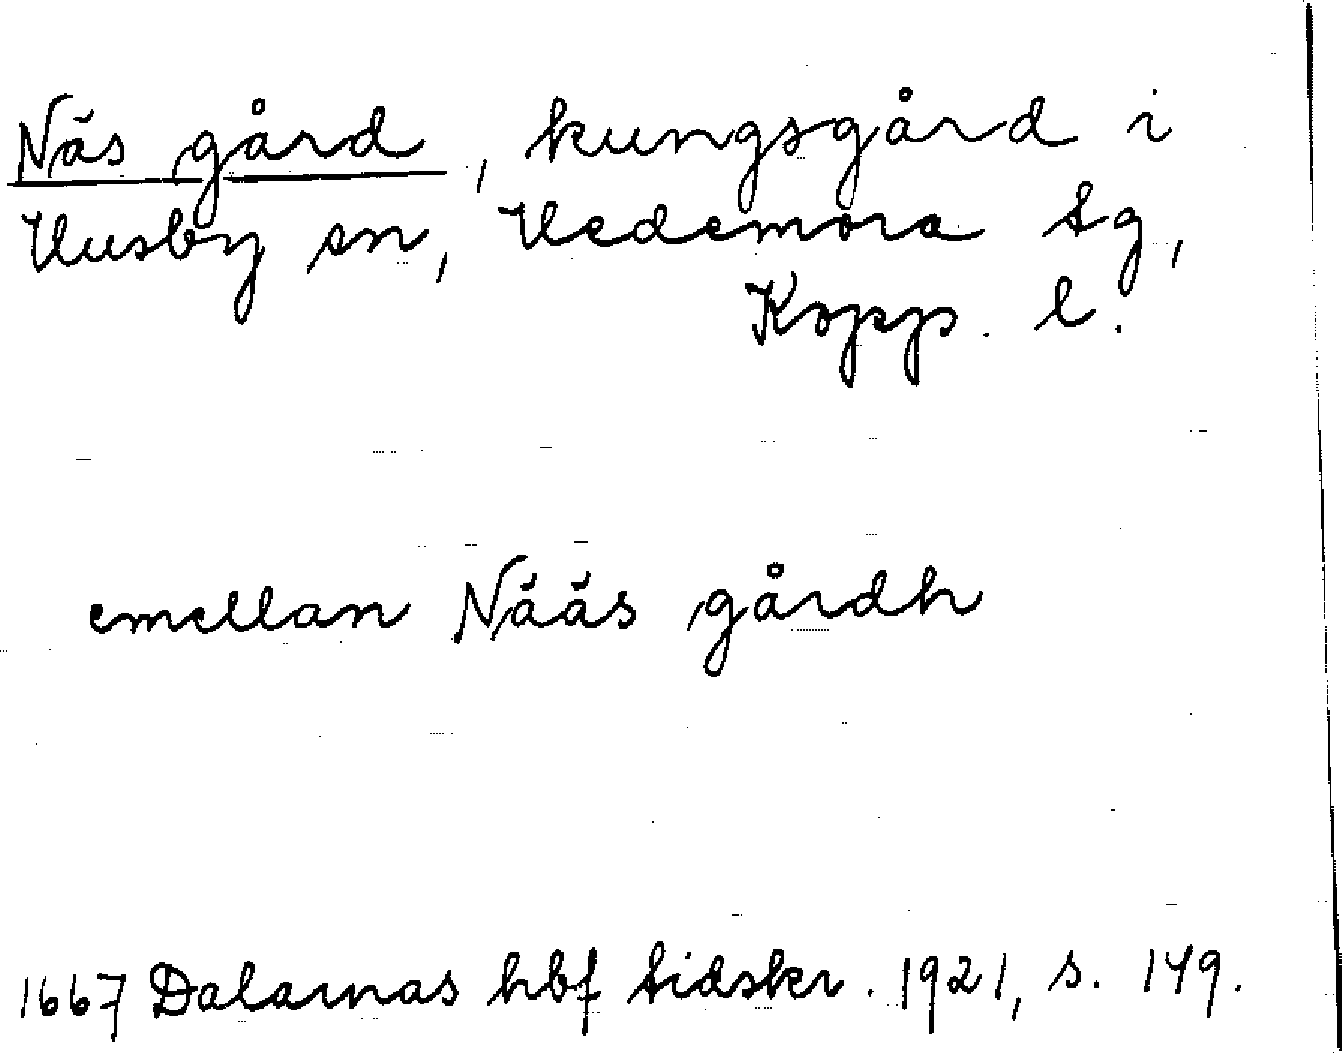 Näs gård, kungsgård i
Husby sn, Hedemora tg,
Kopp. l.
emellan Nääs gårdh
1667 Dalarnas hbf tidskr. 1921, s. 149.